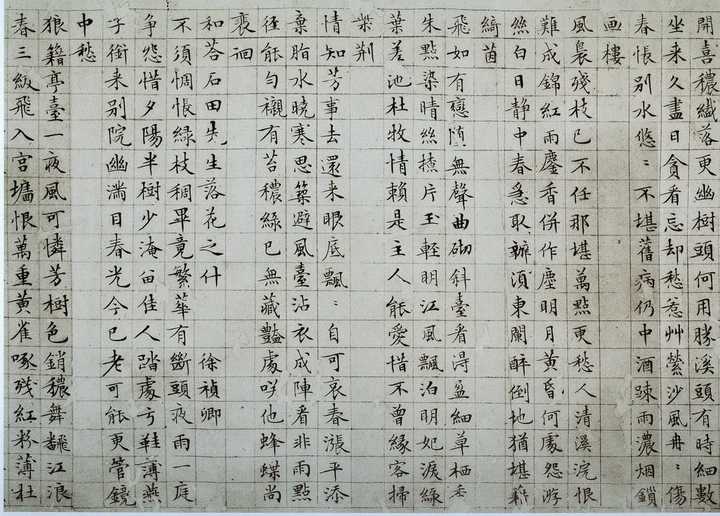 開喜穠纖落更幽樹頭何用勝溪頭有時細數
坐来久盡日貪看忘却愁惹艸縈沙風冉〻傷
春悵别水悠〻不堪舊病仍中酒踈雨濃烟鎖
画樓
風裊殘枝已不任那堪萬點更愁人清溪浣恨
難成錦紅雨鏖香併作塵明月黄昏何處怨游
絲白日静中春急取辦須東闌醉倒地猶堪藉
綺茵
飛如有戀墮無聲曲砌斜臺看得盈細草栖香
朱點染晴絲撩片玉輕明江風飄泊明妃淚綠
葉差池杜牧情賴是主人能愛惜不曾緣客掃
柴荆
情知芳事去還来眼底飄〻自可哀春漲平添
棄脂水曉寒思築避風臺沾衣成陣看非雨點
徑能勻襯有苔穠綠已無藏豔處咲他蜂蝶尚
裵洄
和荅石田先生落花之什　徐禎卿
不須惆悵綠枝稠畢竟繁華有斷頭夜雨一庭
争怨惜夕陽半樹少淹畄佳人踏處弓鞋薄燕
子銜来别院幽滿目春光今已老可能更管鏡
中愁
狼籍亭臺一夜風可憐芳樹色銷穠舞飜江浪
春三級飛入宫墻恨萬重黄雀啄殘紅粉薄杜